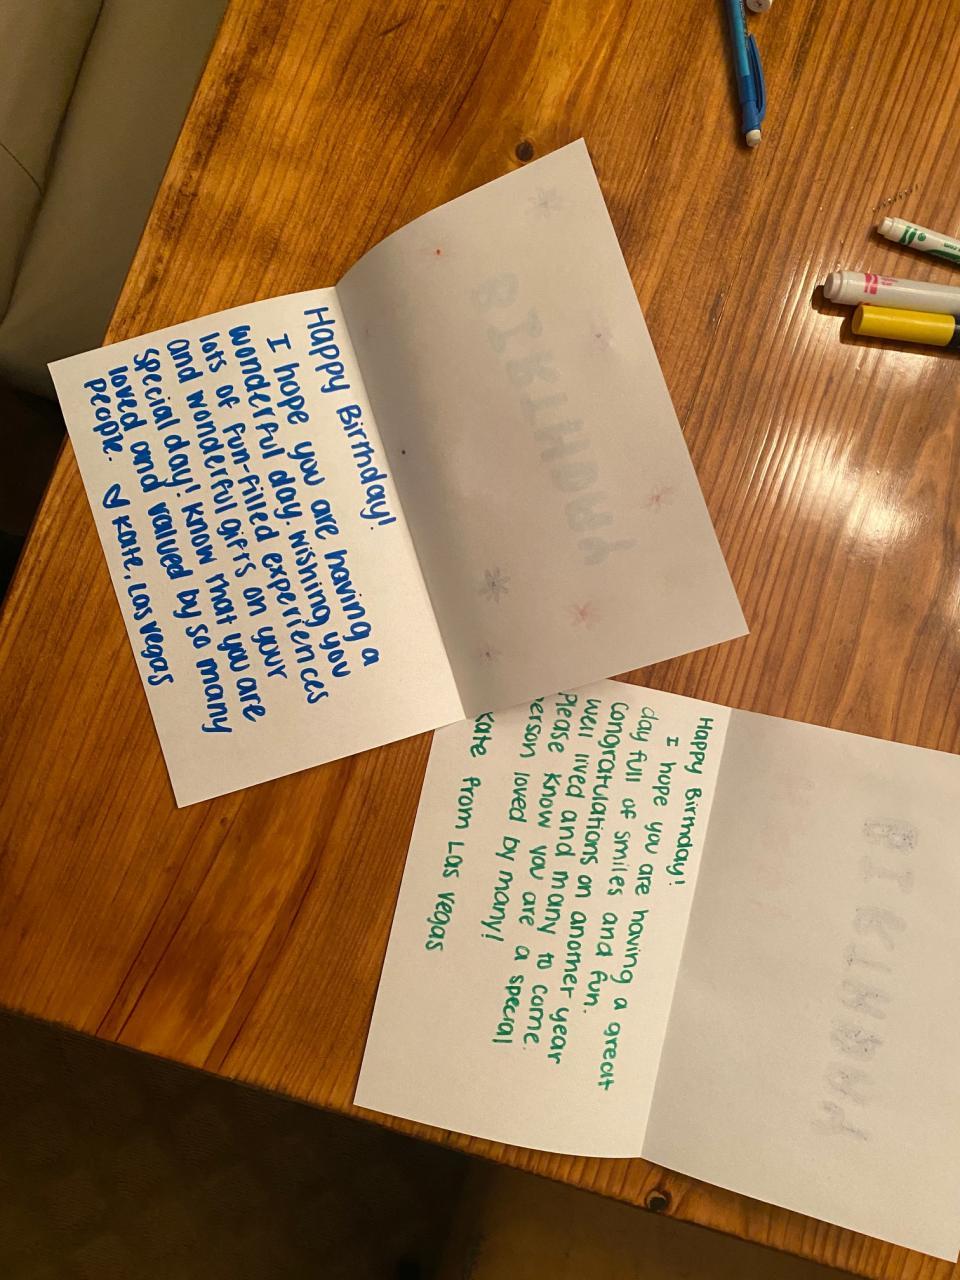 Happy Birthday!
I hope you are having a
wonderful day. Wishing you
lots of fun-filled experiences
and wonderful gifts on your
special day! Know that you are
loved and valued by so many
people. ♡ Kate, Las Vegas
BIRTHDAY
Happy Birthday!
I hope you are having a great
day full of smiles and fun.
Congratulations on another year
well lived and many to come.
Please know you are a special
person loved by many!
Kate from Las Vegas
BIRTHDAY